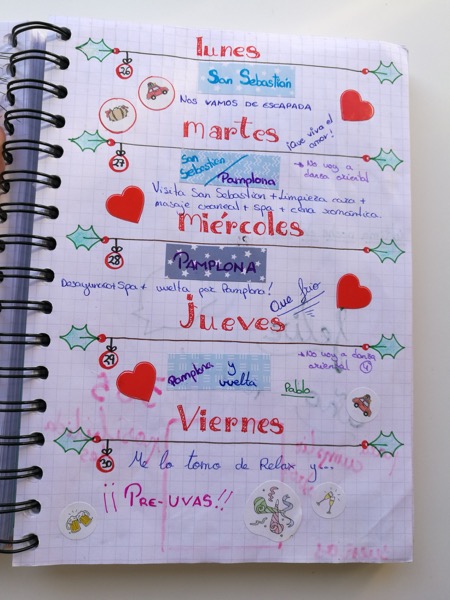 lunes
26
San Sebastián
Nos vamos de escapada
¡Que viva el
amor!
martes
27
San
Sebastián / Pamplona
→ No voy a
danza oriental
Visita San Sebastián + Limpieza cara +
masaje craneal + spa + cena romántica.
Miércoles
28
PAMPLONA
Desayuno + Spa + vuelta por Pamplona!
Que frío
Jueves
29
Pamplona y
vuelta
→ No voy a danza
oriental
Pablo
Viernes
30
Me lo tomo de Relax y...
¡¡PRE-UVAS!!